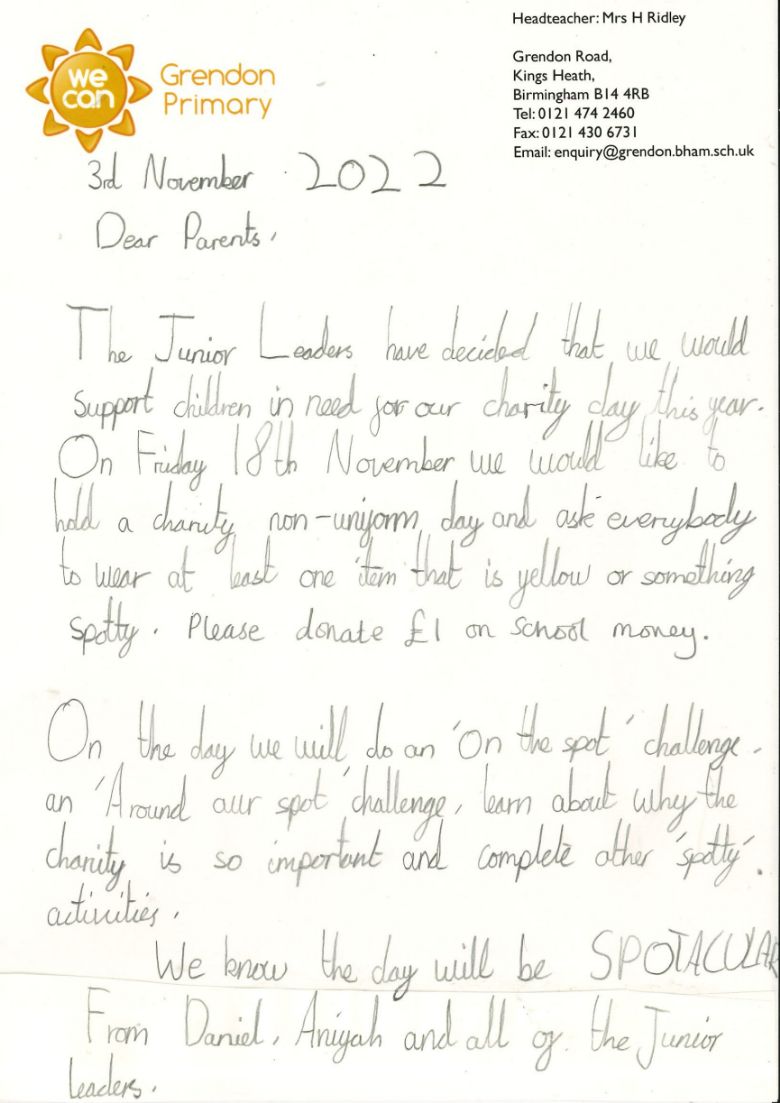 Headteacher: Mrs H Ridley
we
can
Grendon
Primary
Grendon Road,
Kings Heath,
Birmingham B14 4RB
Tel: 0121 474 2460
Fax: 0121 430 6731
Email: enquiry@grendon.bham.sch.uk
3rd November 2022
Dear Parents,
The Junior Leaders have decided that we would
support children in need for our charity day this year.
On Friday 18th November we would like to
hold a charity non-uniform day and ask everybody
to wear at least one item that is yellow or something
spotty. Please donate £1 on school money.
On the day we will do an 'On the spot' challenge,
an 'Around our spot' challenge, learn about why the
charity is so important and complete other 'spotty'.
activities.
We know the day will be SPOTACULAR
From Daniel, Aniyah and all of the Junior
leaders.